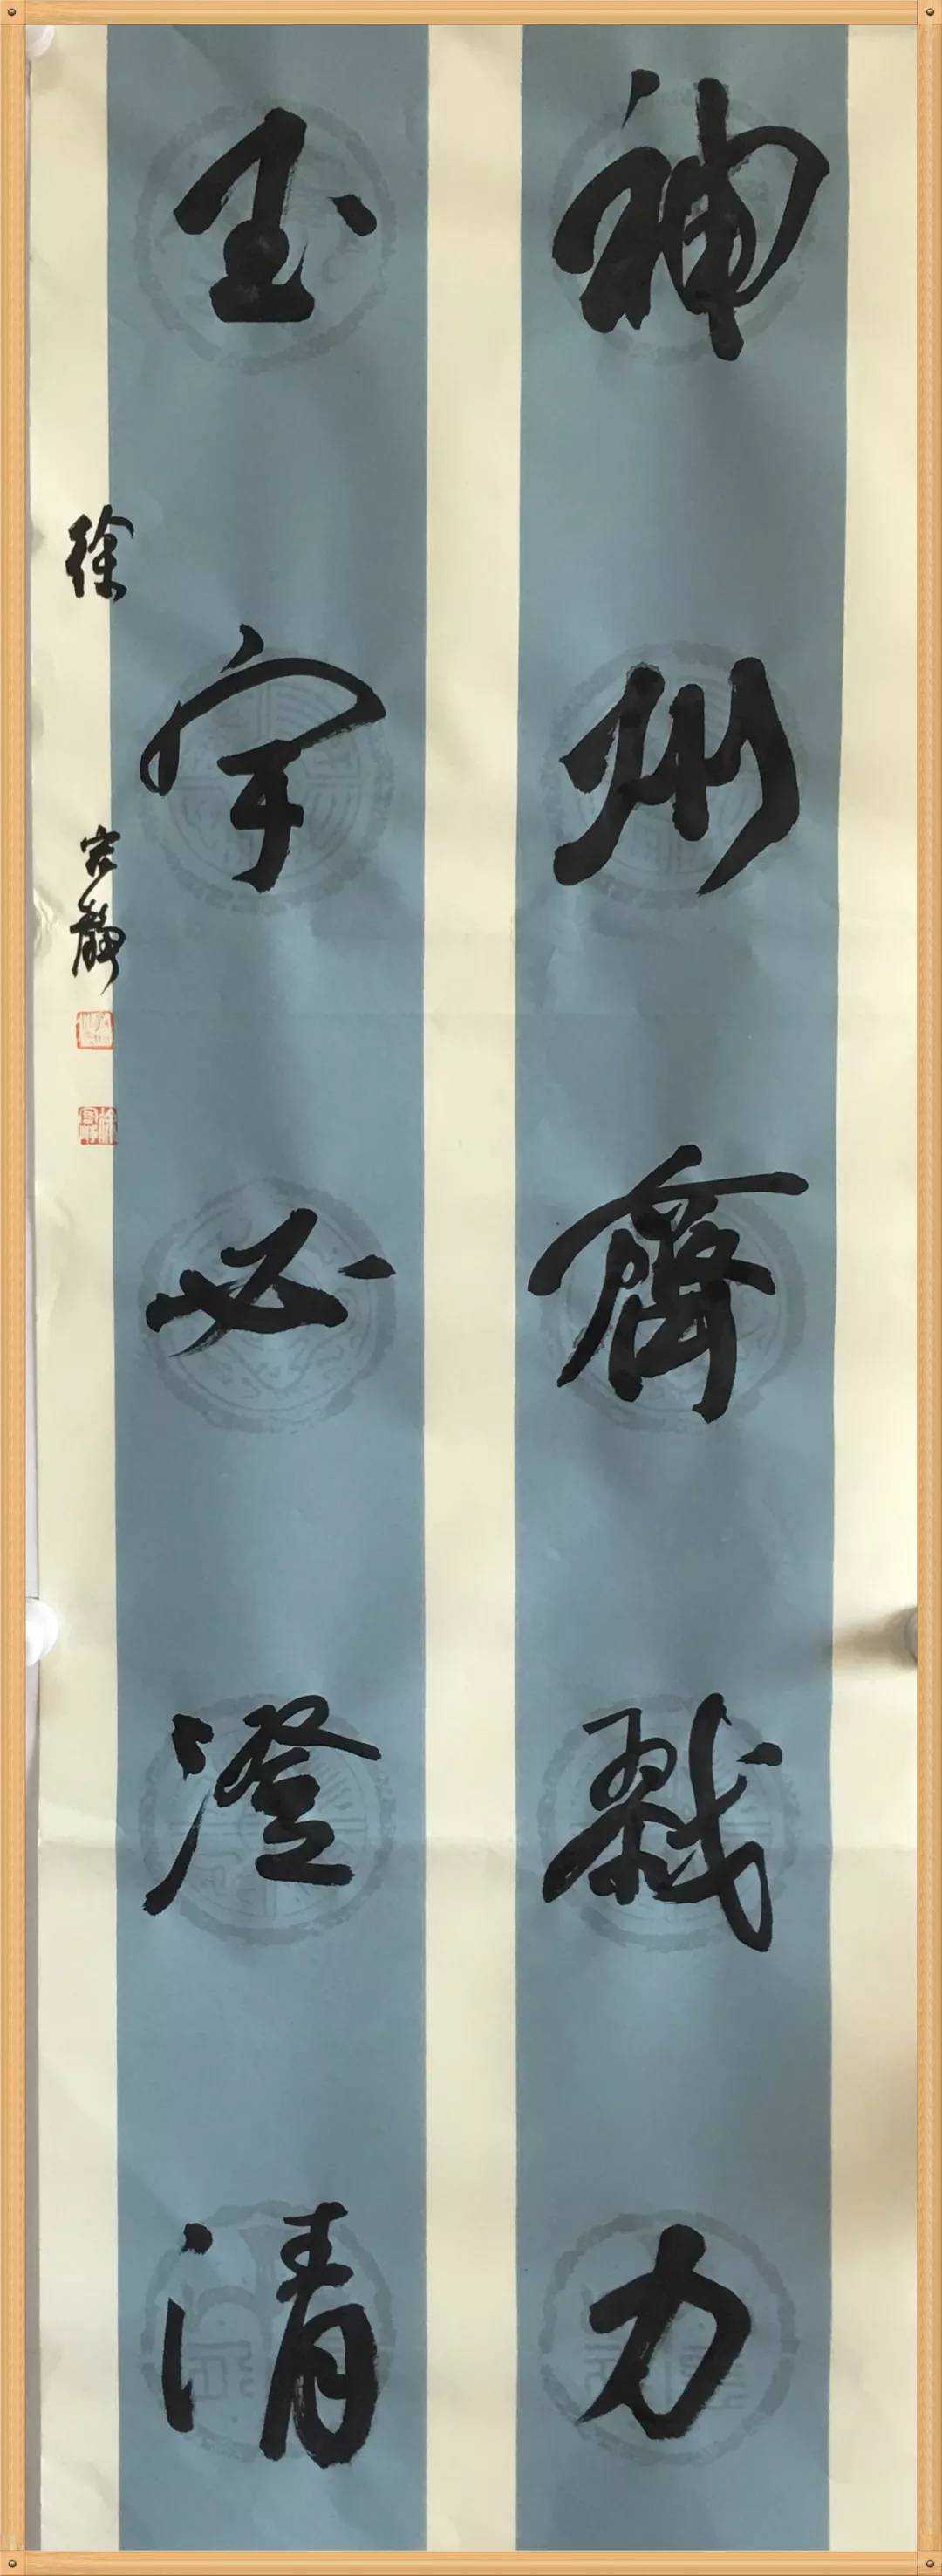 神州齊戮力
玉宇必澄清
徐宗靜